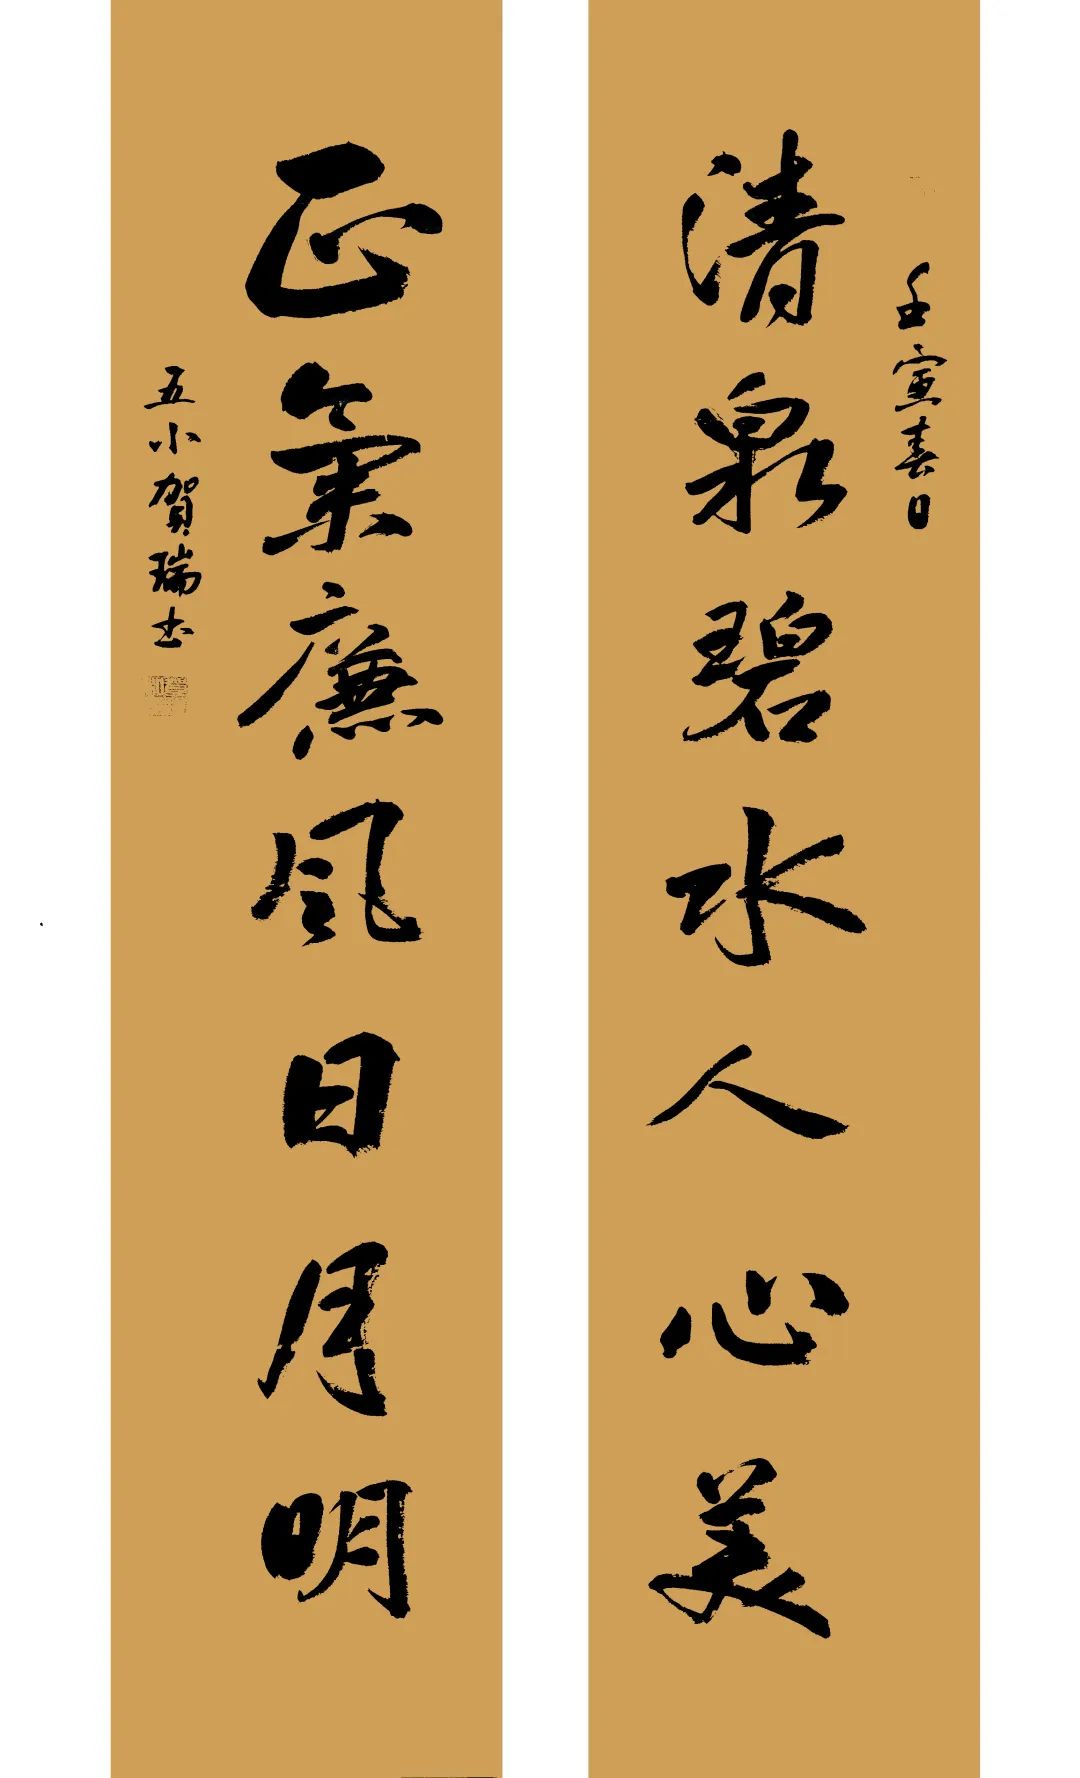 壬寅春日
清泉碧水人心美
正氣廉风日月明
五小賀瑞书